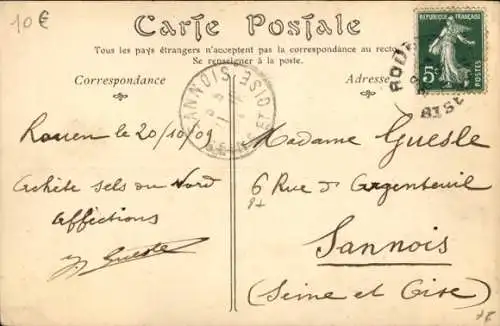 10€
Carte Postale
Tous les pays étrangers n'acceptent pas la correspondance au recto
Se renseigner à la poste.
Correspondance
Adresse
REPUBLIQUE FRANÇAISE
5c
POSTES
SANNOIS
SEINE ET OISE
Rouen le 20/10/09
Achète sels du Nord
Affections
Guesle
Madame Guesle
6 Rue d'Argenteuil
Sannois
(Seine et Oise)